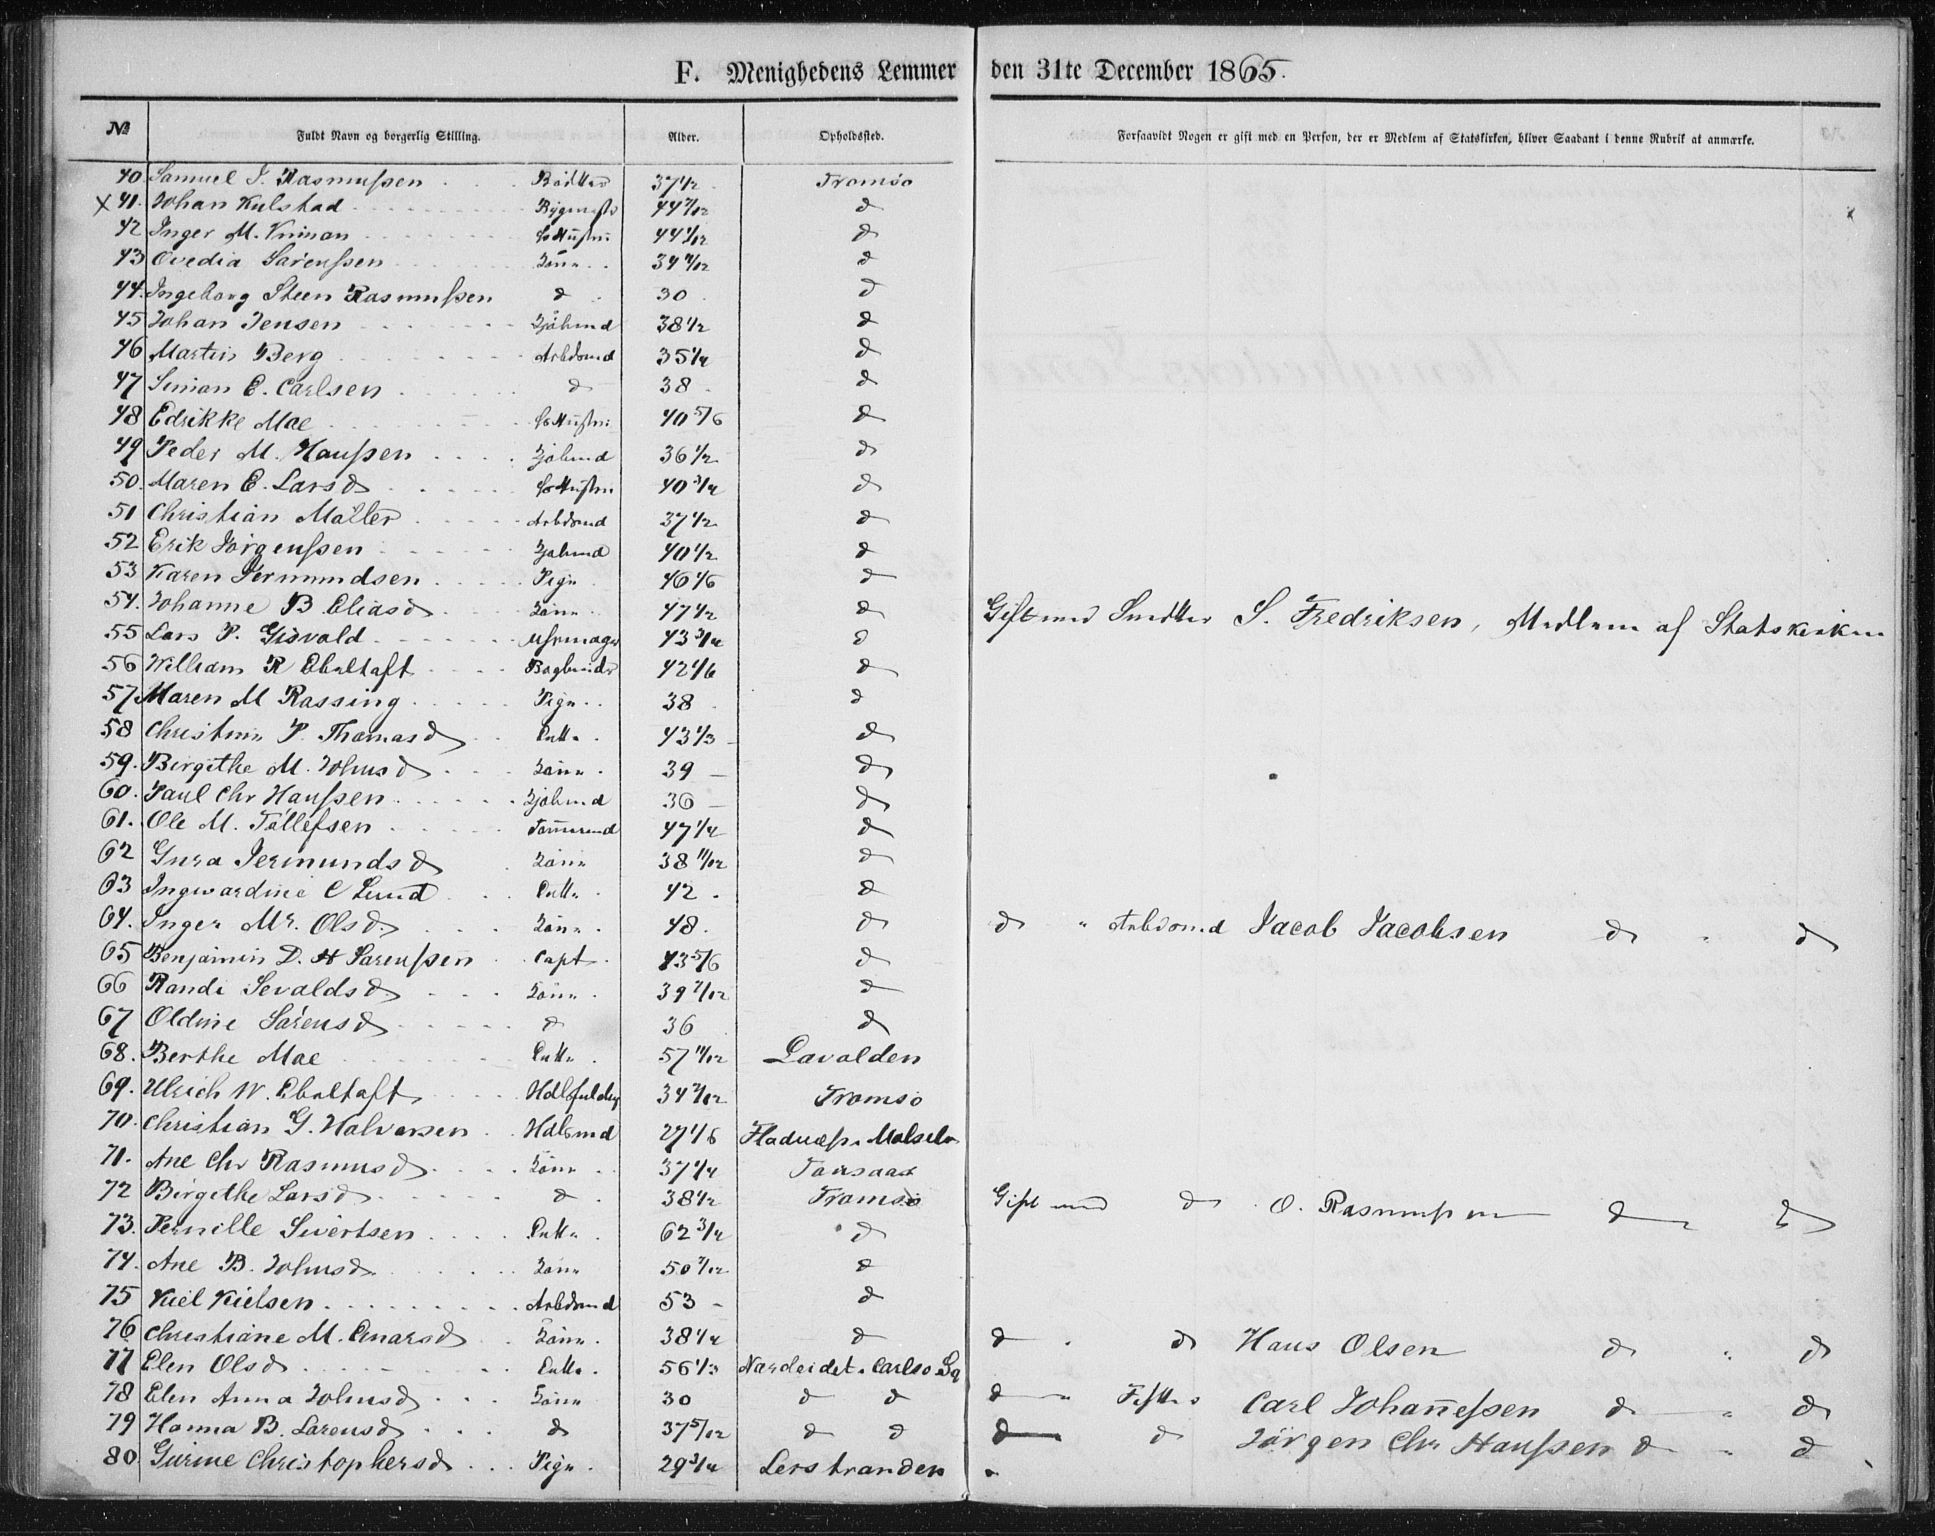 F. Menighedens Lemmer den 31te December 1865.
No Fuldt Navn og borgerlig Stilling. Alder. Opholdssted. Forsaavidt Nogen er gift med en Person, der er Medlem af Statskirken, bliver Saadant i denne Rubrik at anmærke.
40 Samuel J. Rasmussen Bødker 37 1/2 Tromsø
X 41. Johan Kulstad 44 7/12 d
42 Inger M. Kniman Hustru 44 1/12 d
43 Ovedia Sørenssen Kone 34 d
44. Ingeborg Steen Rasmussen d 30 d
45 Johan Jensen Sjøhmd 38 1/2 d
46 Martin Berg Arbdsmd 35 1/4 d
47 Simon E. Carlsen d 38 d
48 Edrikke Moe Hustru 40 5/6 d
49 Peder M. Hanssen Sjøhmd 36 1/2 d
50. Maren E. Larsd Hustru 40 3/4 d
51 Christian Møller Arbdsmd 37 1/2 d
52 Erik Jørgenssen Sjøhmd 40 1/2 d
53 Karen Jermundsen Pige 46 1/6 d
54. Johanne B. Eliasd Kone 47 1/2 d Gift med Smed S. Fredriksen, Medlem af Statskirken
55 Lars P. Gisvold Uhrmager 43 3/4 d
56 William R Ebeltoft Bogbinder 42 1/6 d
57 Maren M Rossing Pige 38 d
58 Christine P. Thomasd Enke 43 1/3 d
59. Birgithe M. Johnsd Kone 39 d
60. Paul Chr Hanssen Sjøhmd 36 d
61. Ole M. Tøllefsen Tømmermd 47 1/4 d
62 Gura Jermundsd Kone 38 11/12 d
63 Ingwardine C Lund Enke 42 d
64. Inger Mr. Olsd. Kone 48. d d " Arbdsmd Jacob Jacobsen d " d
65 Benjamin D. H Sørenssen Capt. 43 5/6 d
66 Randi Sevaldsd Kone 39 7/12 d
67 Oldine Sørensd d 36 d
68. Berthe Moe Enke 57 11/12 Lavolden
69. Ulrich W. Ebeltoft 34 Tromsø
70. Christian G. Halvorsen Hdlsmd 27 1/6
71. Ane Chr Rasmusd Kone 37 1/4
72 Birgithe Larsd d 38 1/2 Tromsø Gift med d O. Rasmussen d " d
73. Pernille Sivertsen Enke 62 3/4 d
74. Ane B. Johnsd Kone 50 7/12 d
75 Kiel Kielsen Arbdsmd 53 d
76 Christiane M. Einarsd Kone 38 1/4 d d " d Hans Olsen d " d
77 Elen Olsd Enke 56 1/3 Nordeidet i Carlsø Sg
78 Elen Anna Johnsd Kone 30 d d d " Carl Johannessen d " d
79 Hanna B. Lorensd d 37 5/12 d d d d Jørgen Chr Hanssen d " d
80 Gurine Christophersd Pige 29 3/4 Lerstranden